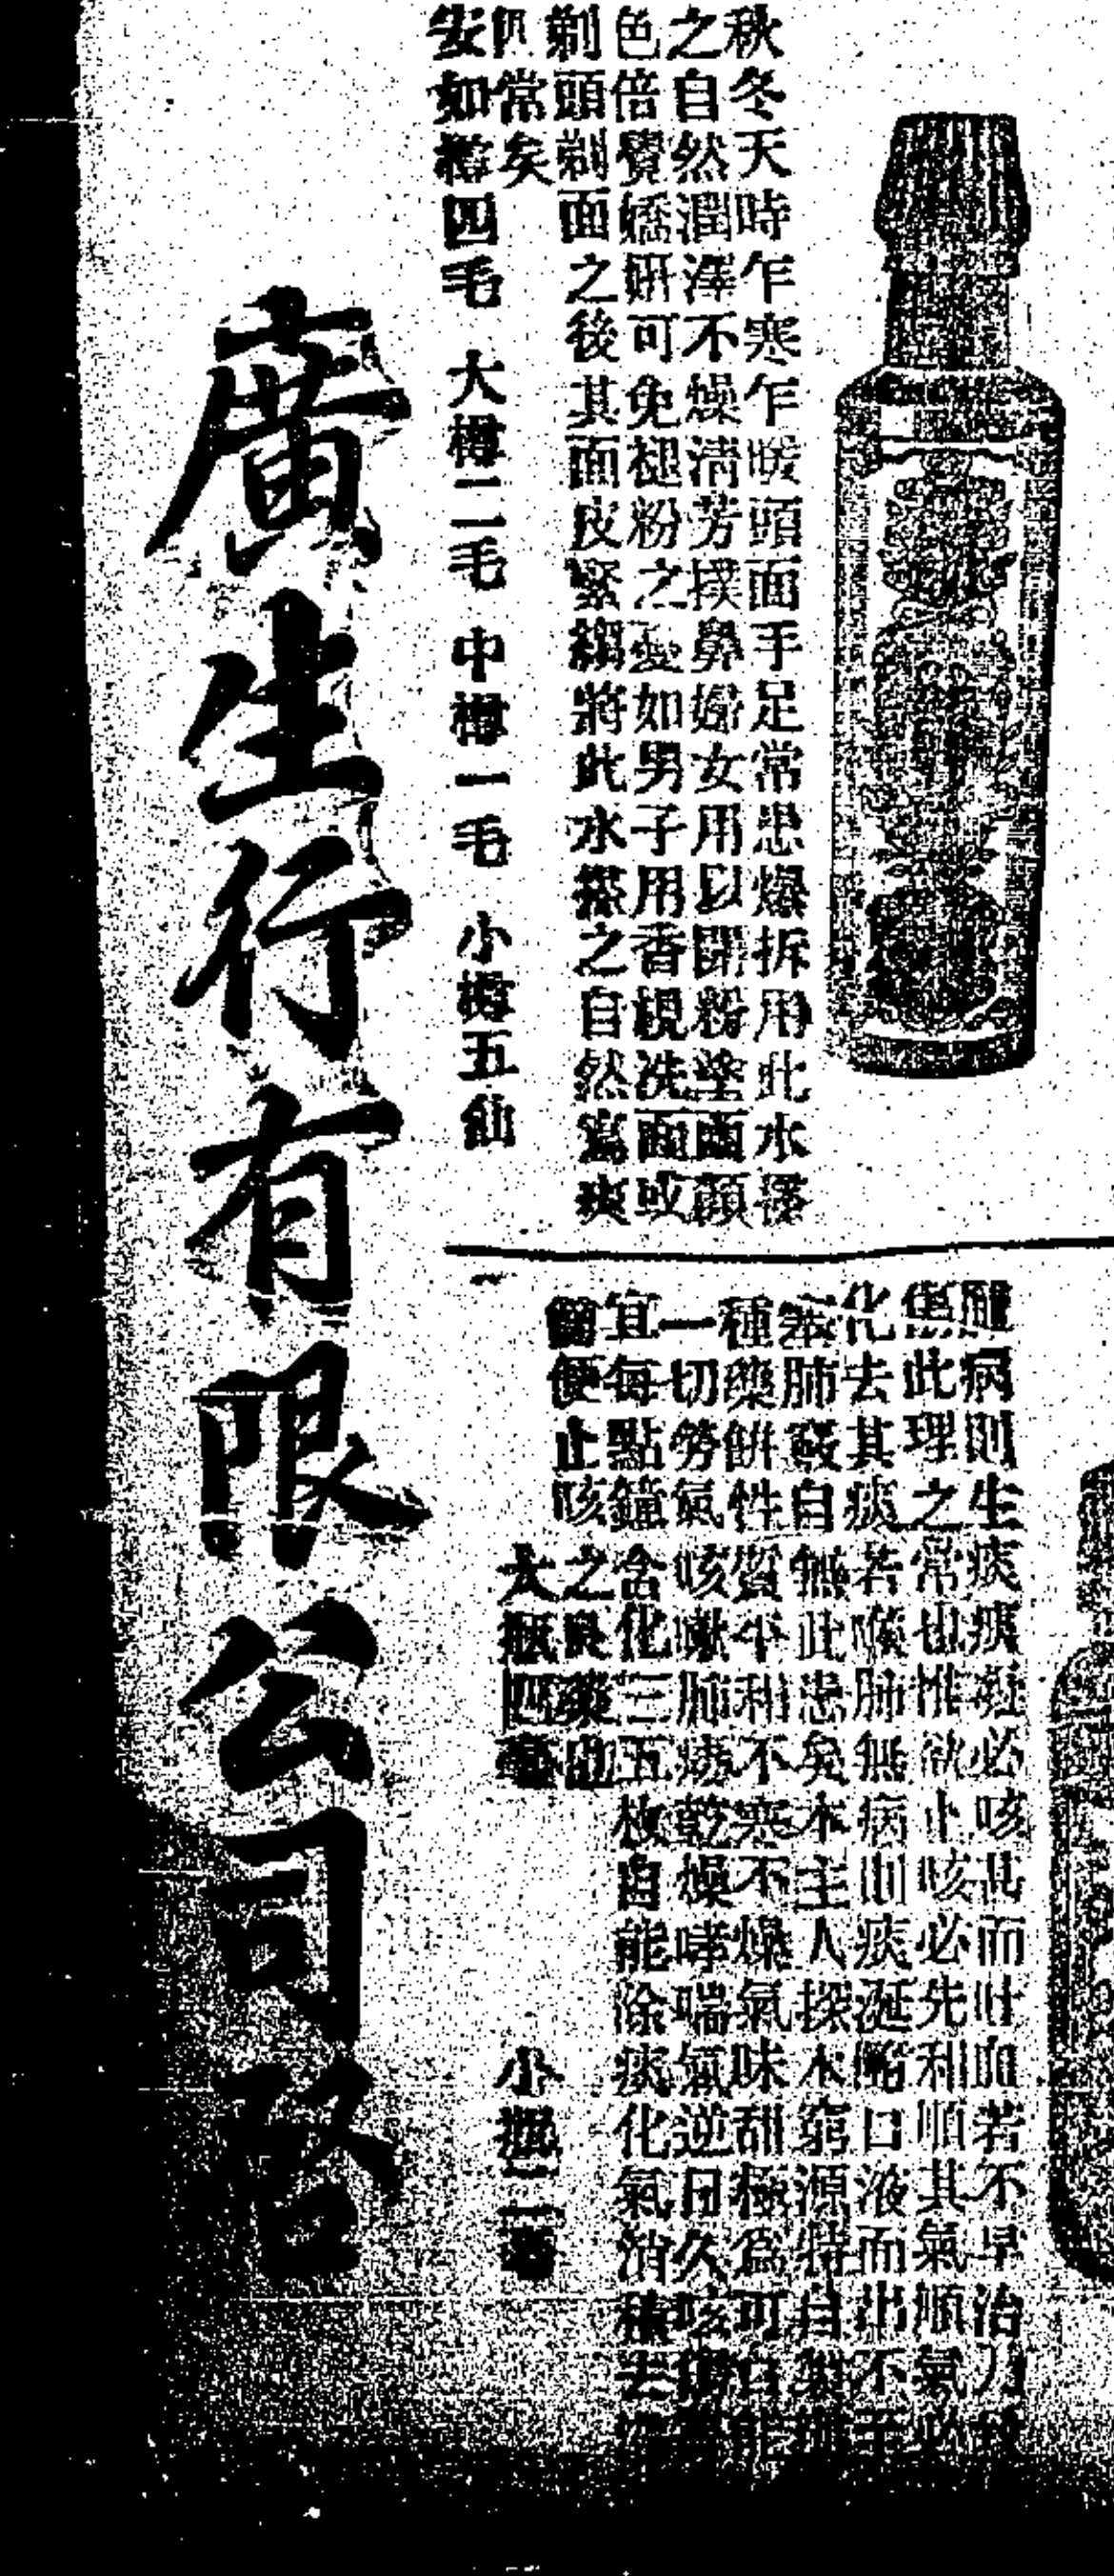 秋冬天時乍寒乍暖頭面手足常患爆拆用此水搽
之自然潤澤不燥清芳撲鼻婦女用以開粉塗面顔
色倍覺嬌妍可免褪粉之憂如男子用香梘洗面或
剃頭剃面之後其面皮緊縐將此水搽之自然爲爽
常矣
如 四毛 大樽二毛 中樽一毛 小樽五仙
病則生痰痰延必咳甚而吐血若不早治乃
此理之常也惟欲止咳必先利順其氣順氣必
化去其痰若喉肺無病則痰涎隨口液而出不
肺竅自無此患矣本主人探本窮源特自製
種藥餅性質平和不寒不燥氣味甜極爲可口能
一切勞氣咳嗽肺癆乾燥哮喘氣逆日久咳傷
宜每點鐘含化三五枚自能除痰化氣消積去
便止咳之良藥也
大瓶四毫 小瓶二毫
廣生行有限公司啓